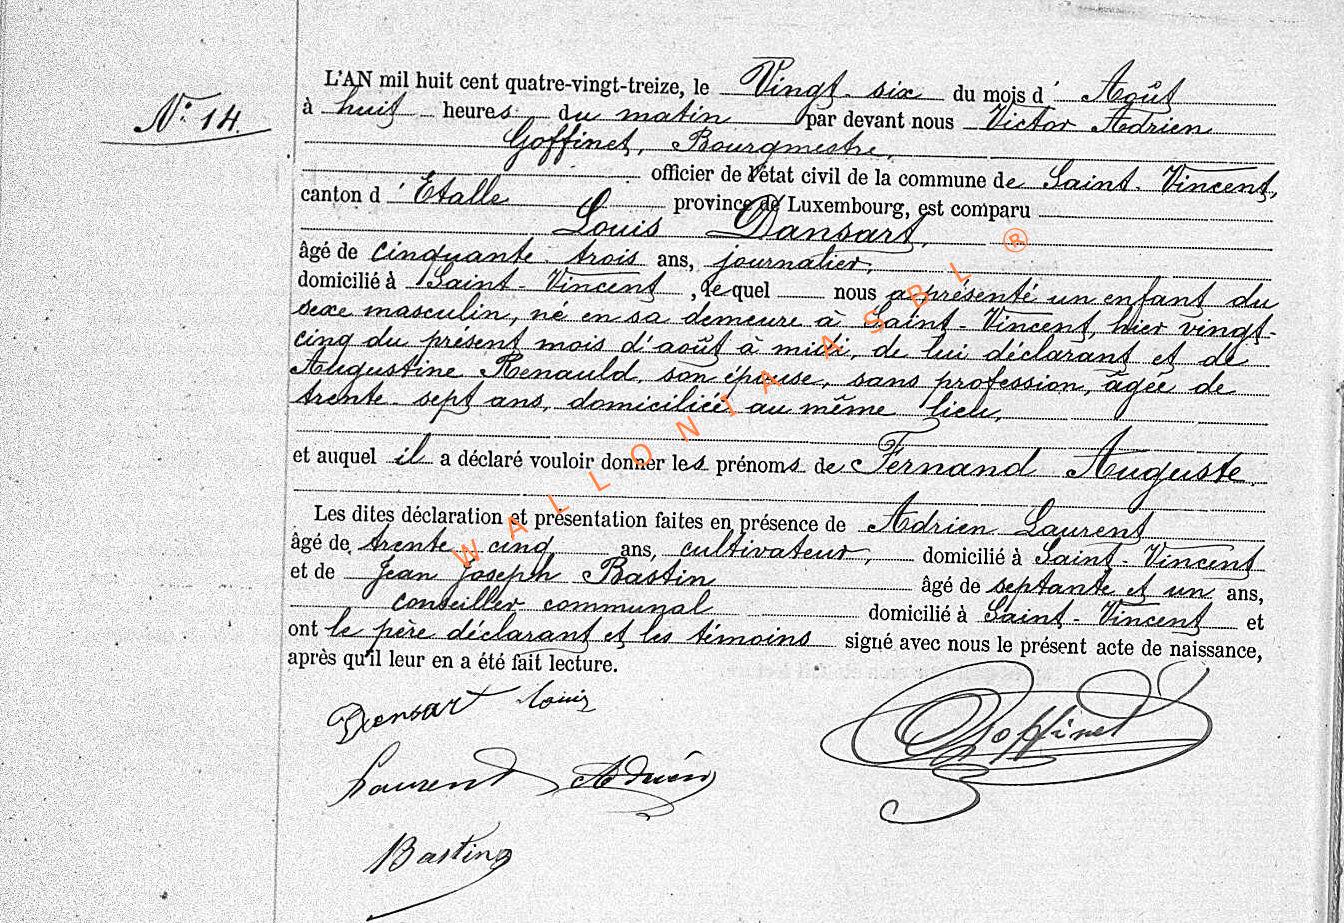 L'AN mil huit cent quatre-vingt-treize, le Vingt-six du mois d' Août
N° 14.
à huit heures du matin par devant nous Victor Adrien
Goffinet, Bourgmestre,
officier de l'état civil de la commune de Saint-Vincent,
canton d 'Etalle province de Luxembourg, est comparu
Louis Dansart,
âgé de cinquante-trois ans, journalier,
domicilié à Saint-Vincent, lequel nous a présenté un enfant du
sexe masculin, né en sa demeure à Saint-Vincent, hier vingt-
cinq du présent mois d'août à midi, de lui déclarant et de
Augustine Renauld, son épouse, sans profession, âgée de
trente-sept ans, domiciliée au même lieu,
et auquel il a déclaré vouloir donner les prénoms de Fernand Auguste.
Les dites déclaration et présentation faites en présence de Adrien Laurent
âgé de trente cinq ans, cultivateur, domicilié à Saint-Vincent
et de Jean Joseph Bastin âgé de septante et un ans,
conseiller communal domicilié à Saint-Vincent et
ont le père déclarant et les témoins signé avec nous le présent acte de naissance,
après qu'il leur en a été fait lecture.
Dansart Louis
Goffinet
Laurent Adrien
Bastin
WALLONIA ASBL ®